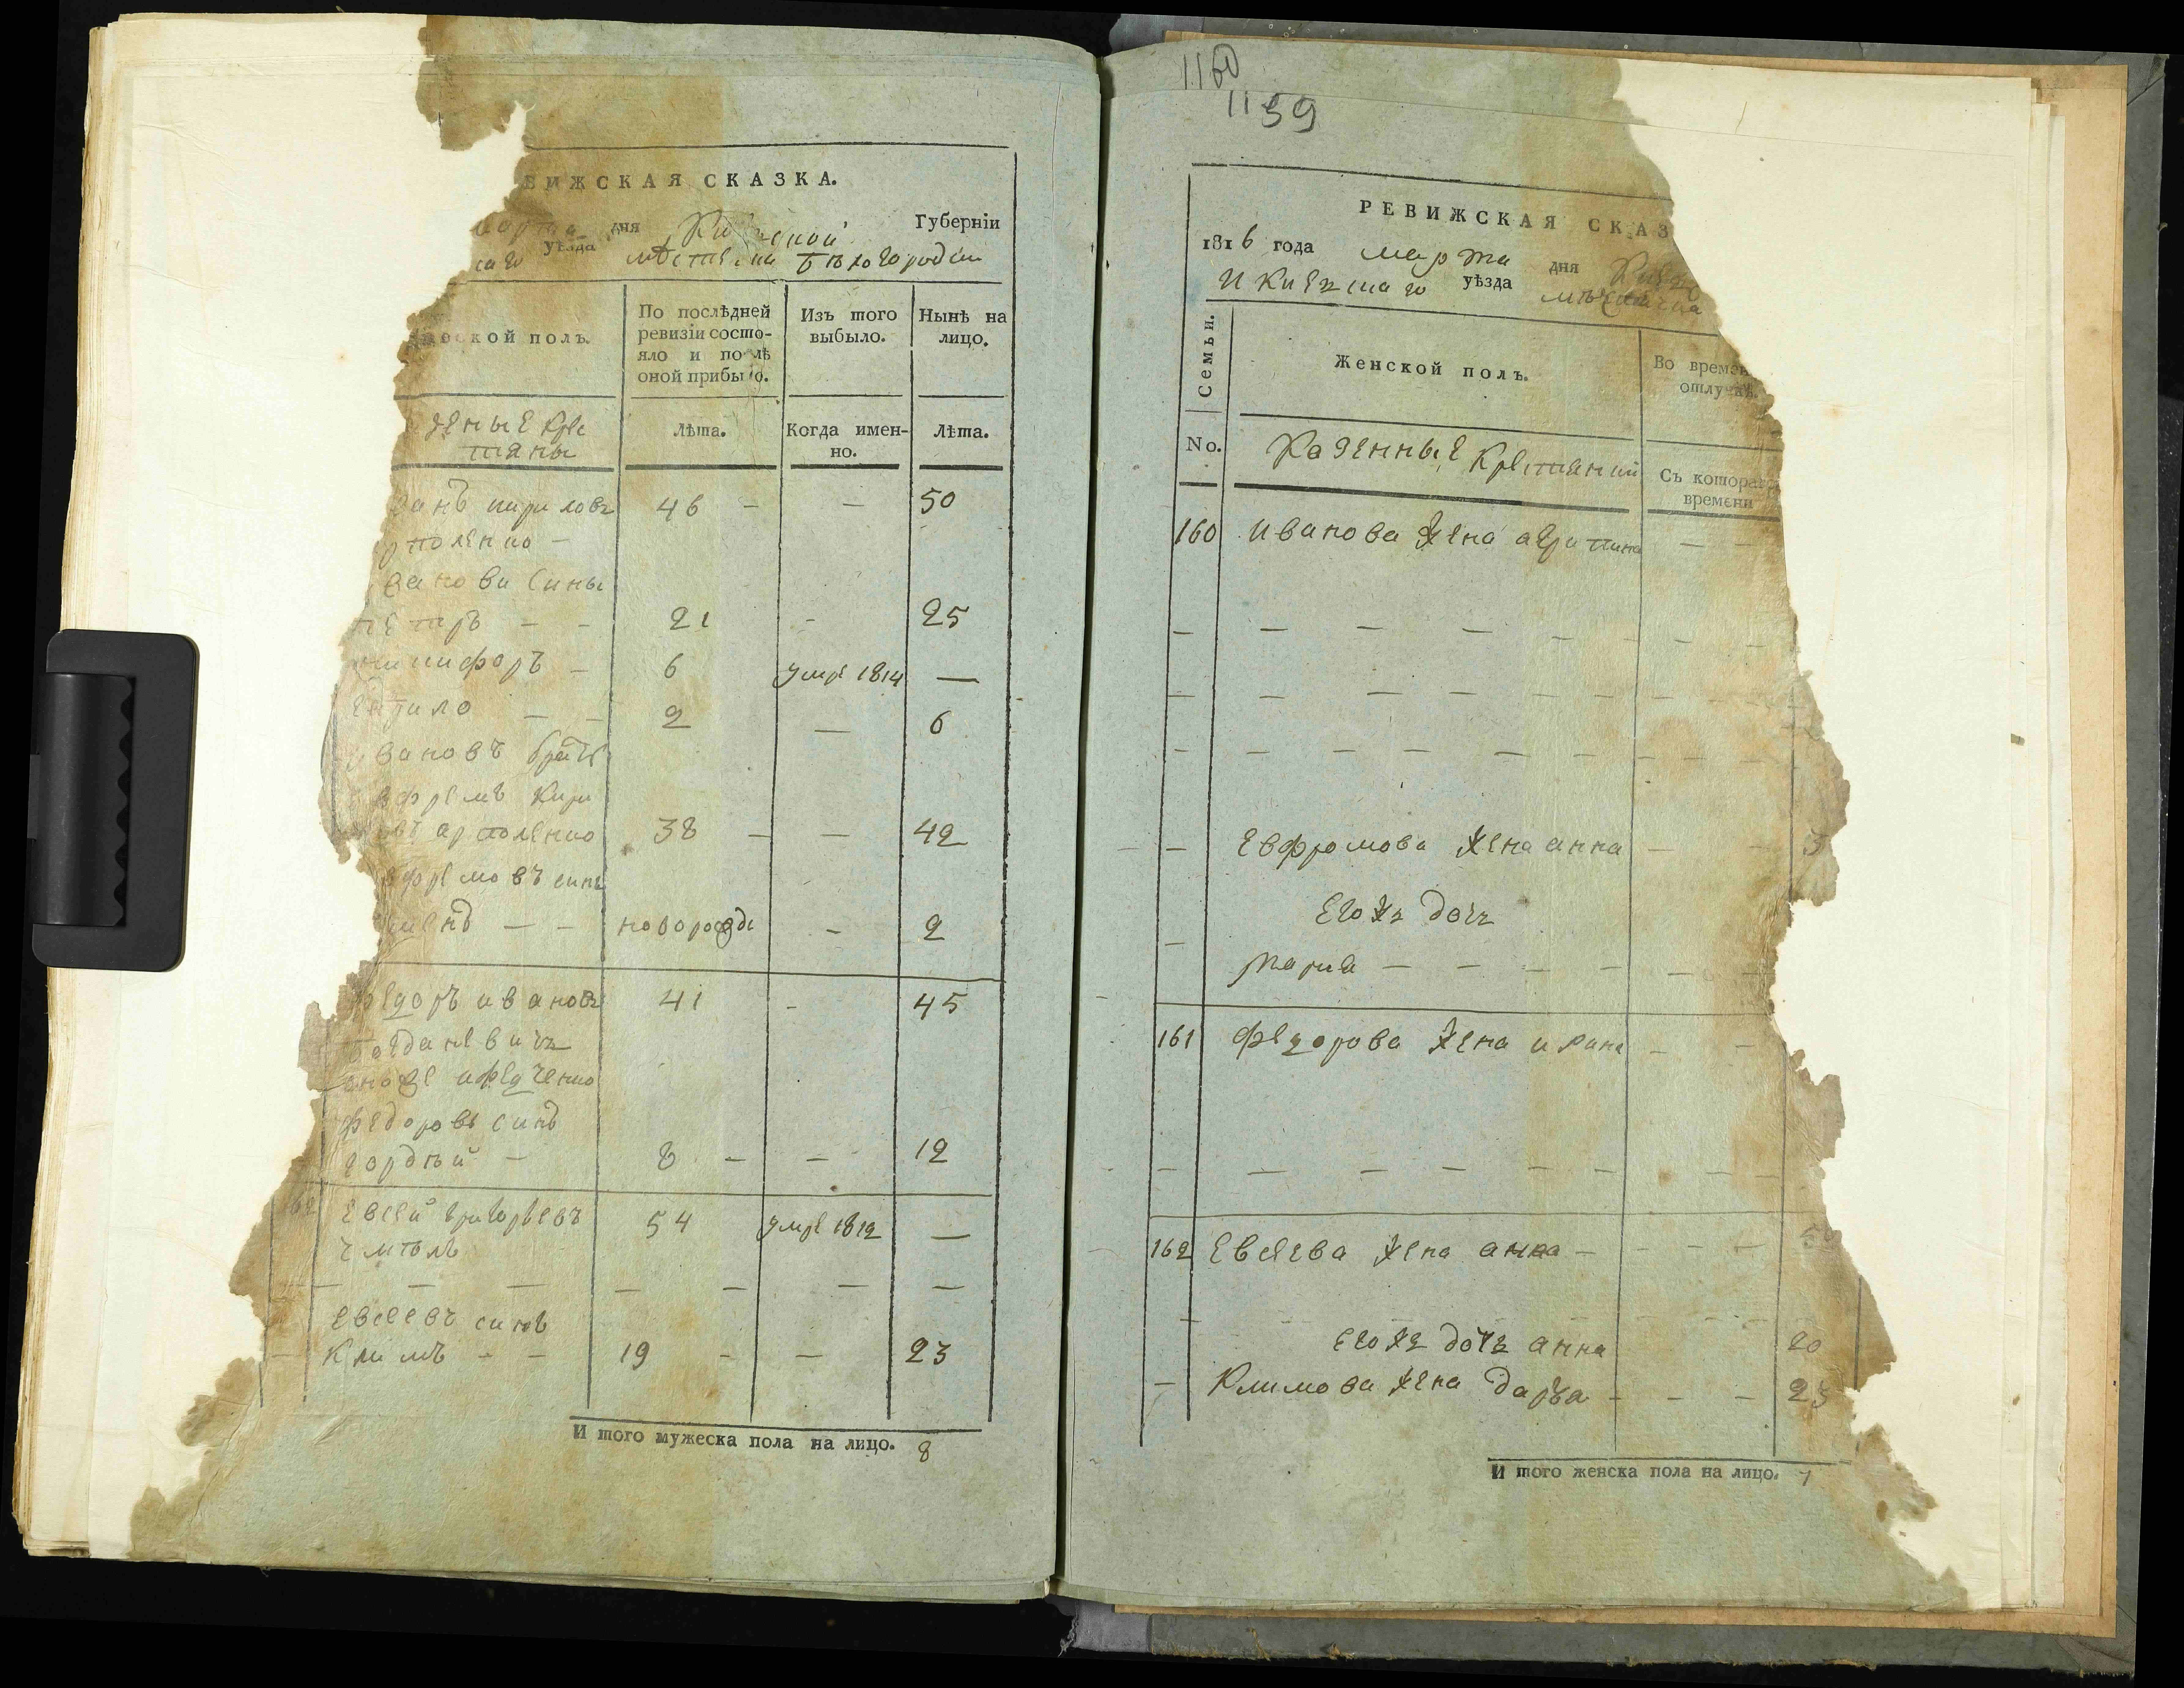 ВИЖСКАЯ СКАЗКА.
марта дня Киевской Губерніи
уѣзда мѣстечка Бѣлогородки
ской полъ.
По послѣдней ревизіи состо-
яло и послѣ
оной прибыло.
Изъ того выбыло.
Нынѣ на лицо.
зеные кре
тяны
Лѣта.
Когда имен-
но.
Лѣта.
ванъ кириловъ 46 - — 50
рполенко -
ванови сины
петръ - - 21 - 25
никифоръ - 6 умре 1814 —
гаврило - - 2 — 6
ивановъ братъ
евфремъ Кири
овъ арполенко 38 - — 42
вфремовъ синъ
- - новорожде - 2
федоръ ивановъ 41 - 45
богданевичъ
онже ифедченко
федоровъ синъ
гордѣй - 8 - — 12
162 Евсей григорьевъ 54 умре 1812 —
чмѣль
— — — — — — —
Евсеевъ синъ
Климъ - - 19 - — 23
И того мужеска пола на лицо. 8
1160
1159
РЕВИЖСКАЯ СКАЗ
1816 года марта дня Киевс
И Киевскаго уѣзда мѣстечка
Семьи.
Женской полъ.
Во время
отлучкѣ.
No.
Казенные Крестянки
Съ котораго
времени
160 Иванова жена агрипина — -
— — — — — — — —
— — — — — — — —
— — — — — — — —
— Евфромова жена анна — - 3
Егожъ дочъ
— Мария — — — — — —
161 Федорова жена ирина — -
— — — — — — — —
162 Евсеева жена анна — - - - 5
Егожъ дочъ анна 20
— Климова жена даръя - - - 23
И того женска пола на лицо. 7